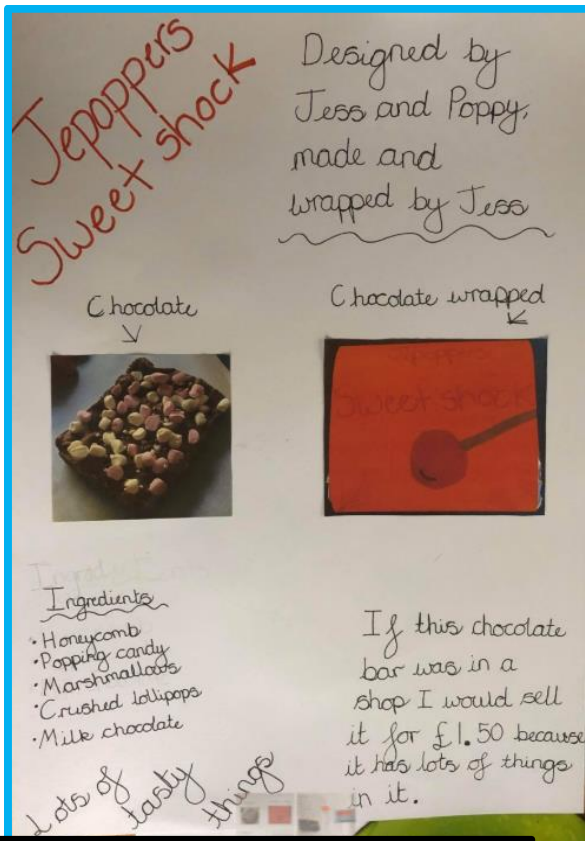 Jepoppers
Sweet shock
Designed by
Jess and Poppy,
made and
wrapped by Jess
Chocolate
Chocolate wrapped
Jepoppers
Sweet shock
Ingredients
Ingredients
• Honeycomb
• Popping candy
• Marshmallows
• Crushed lollipops
• Milk chocolate
If this chocolate
bar was in a
shop I would sell
it for £1.50 because
it has lots of things
in it.
Lots of
tasty
things